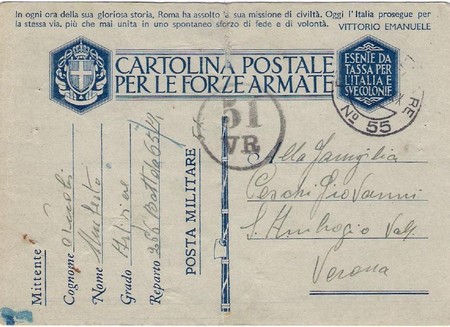 In ogni ora della sua gloriosa storia, Roma ha assolto la sua missione di civiltà. Oggi l'Italia prosegue per
la stessa via, più che mai unita in uno spontaneo sforzo di fede e di volontà. VITTORIO EMANUELE
CARTOLINA POSTALE
PER LE FORZE ARMATE
ESENTE DA
TASSA PER
L'ITALIA E
SVE COLONIE
51
VR
No 55
Mittente
Cognome
Nome Umberto
Grado Artigliere
Reparto
POSTA MILITARE
Alla Famiglia
Ceschi Giovanni
S. Ambrogio Valp.
Verona